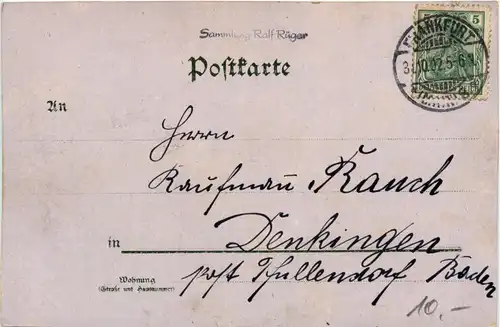 Sammlung Ralf Rüger
Postkarte
5
FRANKFURT
02 5-6
An
Herrn
Kaufmañ Rauch
in Denkingen
Wohnung
(Straße und Hausnummer)
post Pfullendorf Baden
10.-